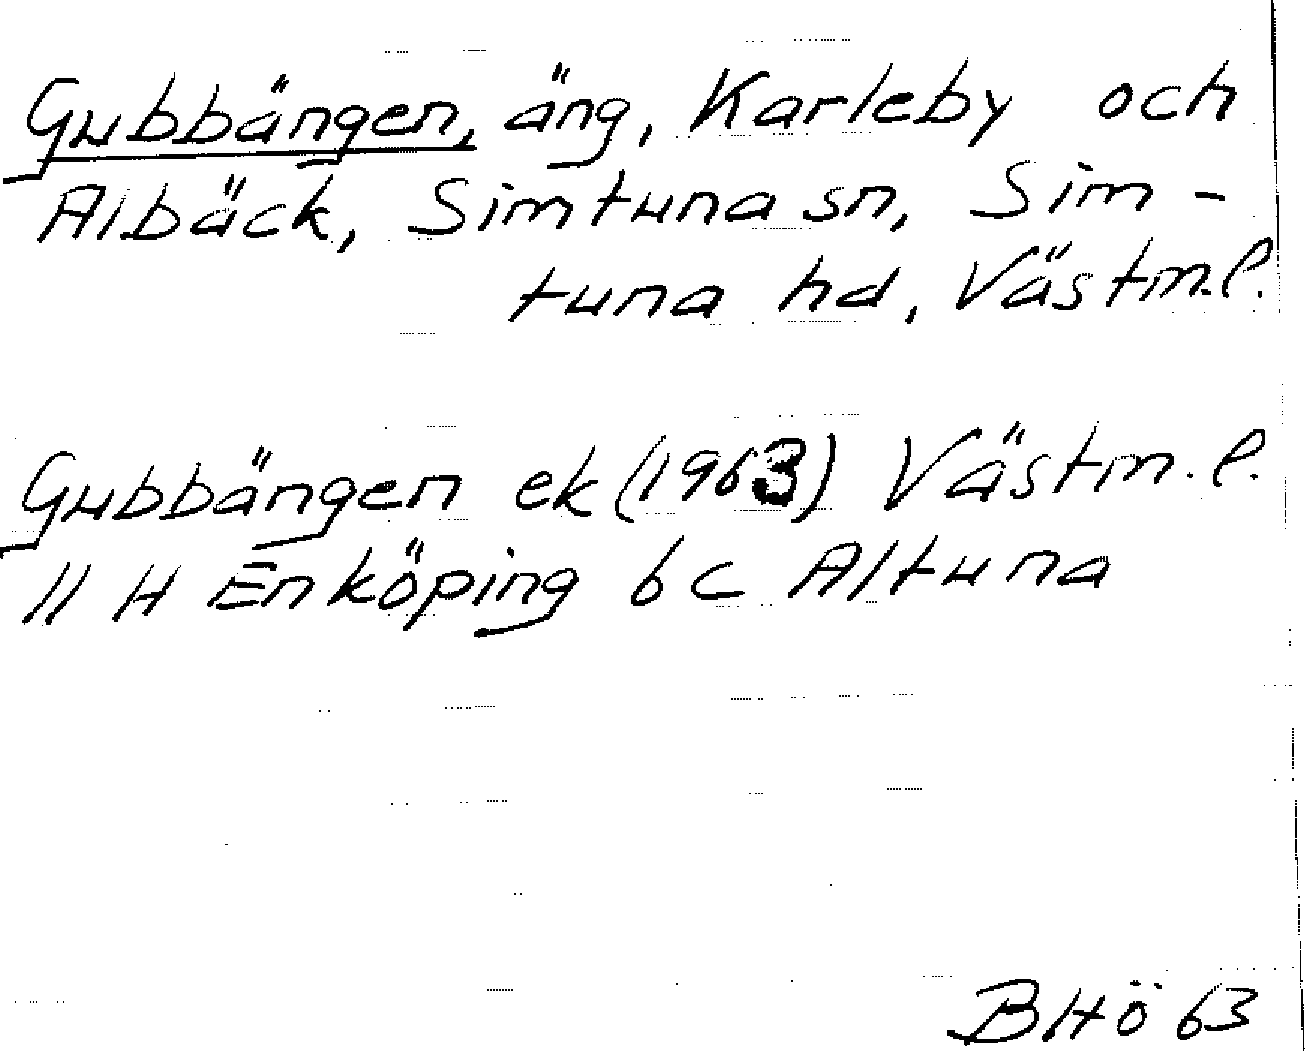 Gubbängen, äng, Karleby och
Albäck, Simtuna sn, Sim-
tuna hd, Västm.l.
Gubbängen ek (1963) Västm.l.
11 H Enköping 6c Altuna
BHö 63